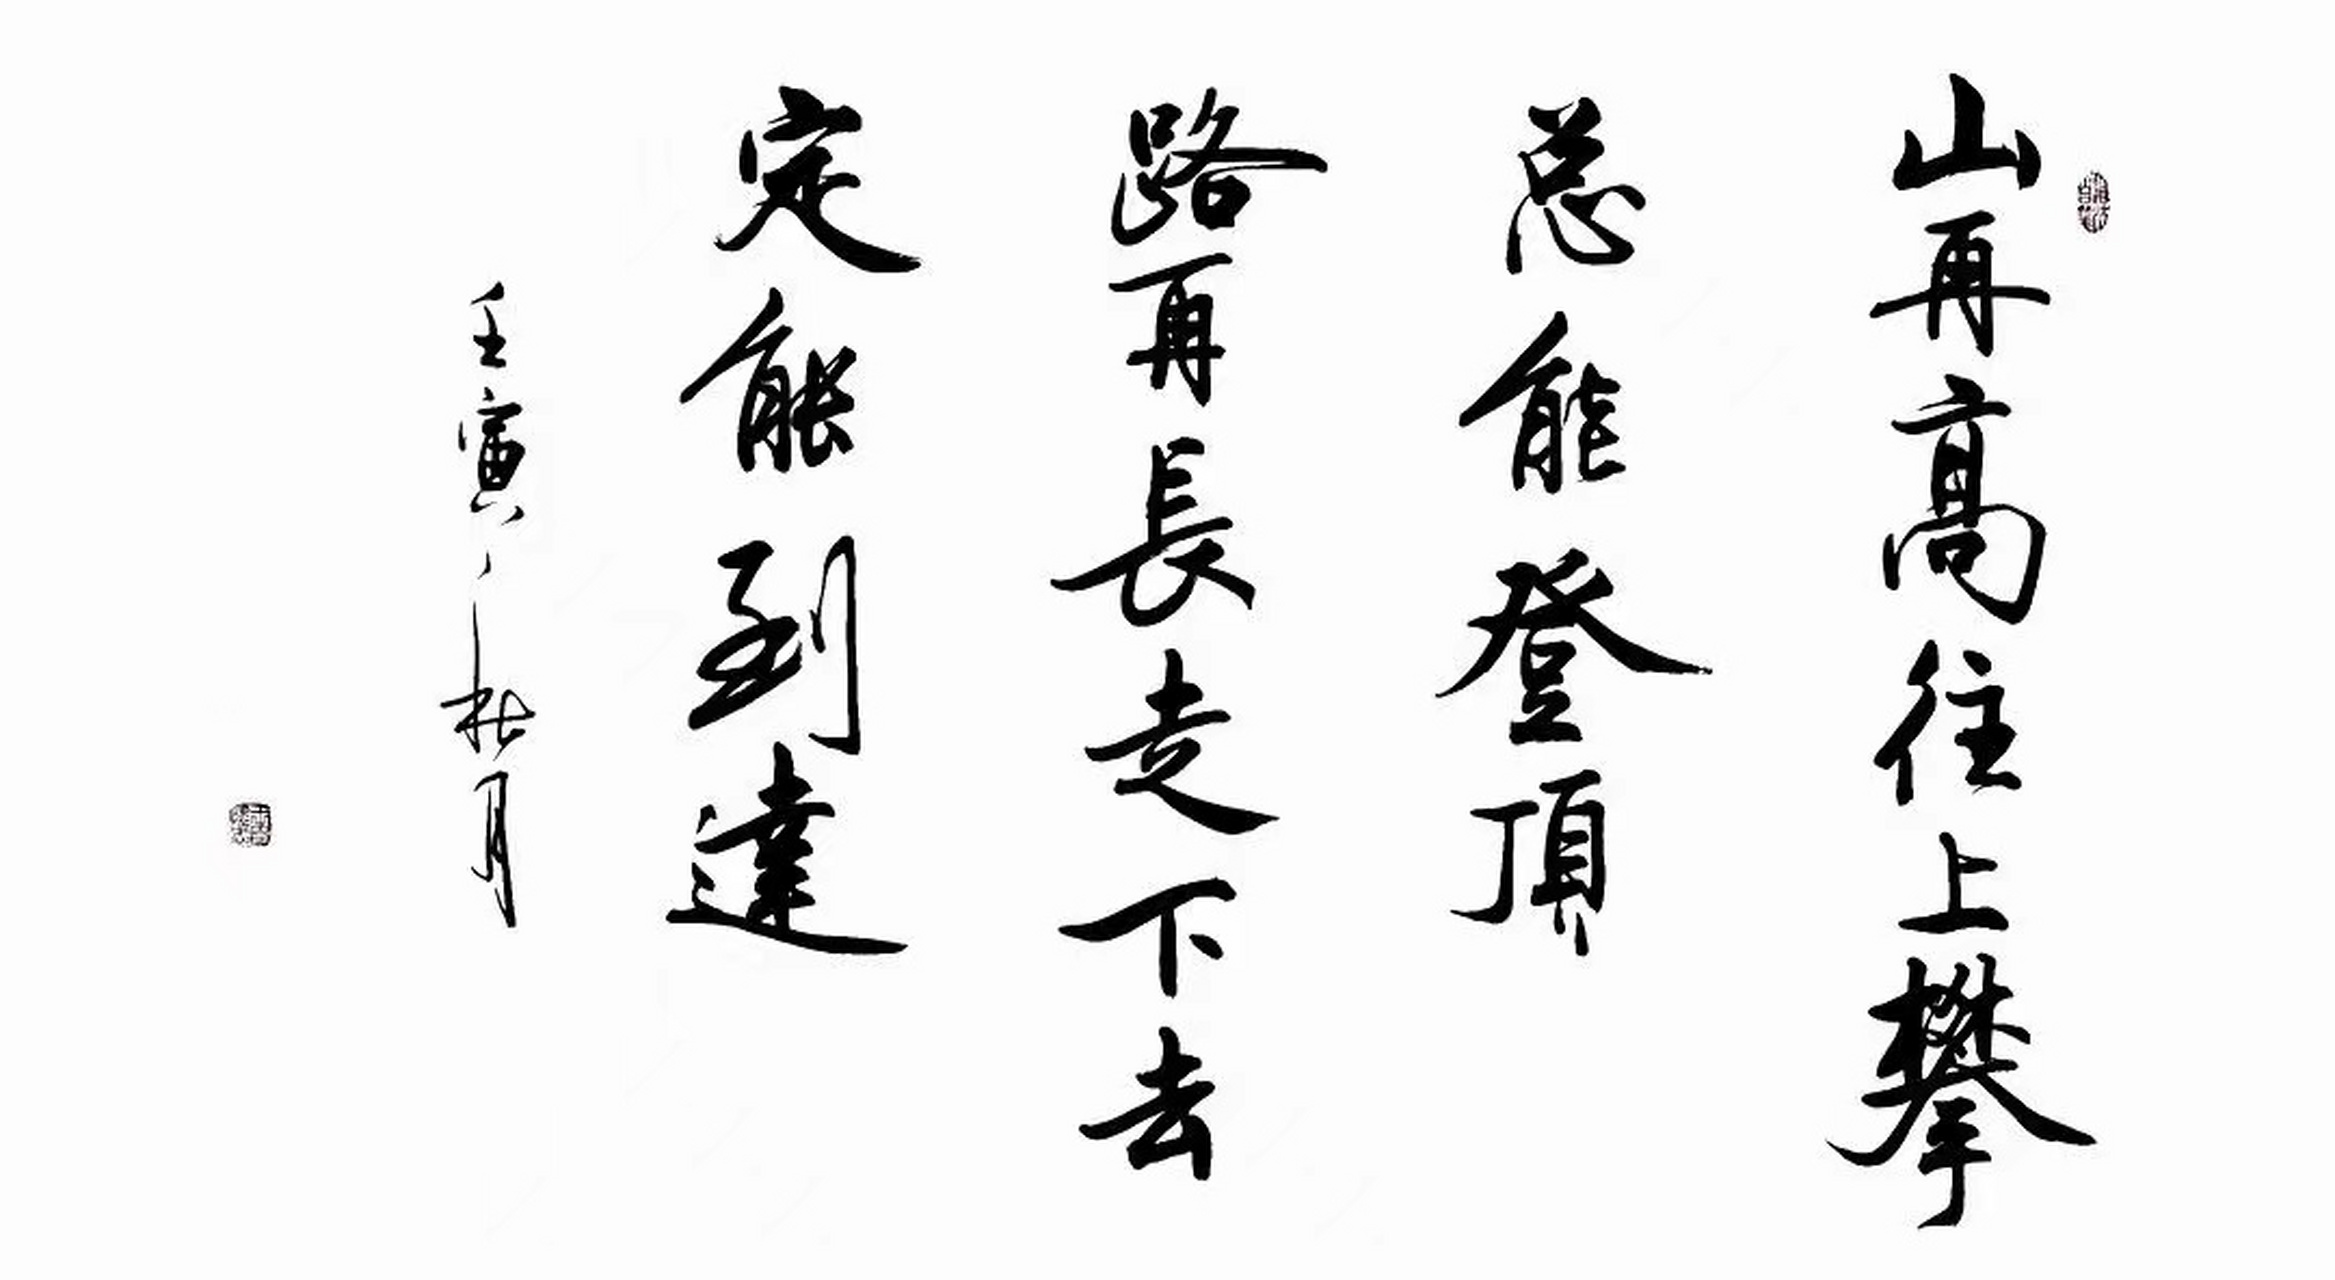 山再高往上攀
总能登頂
路再長走下去
定能到達
壬寅